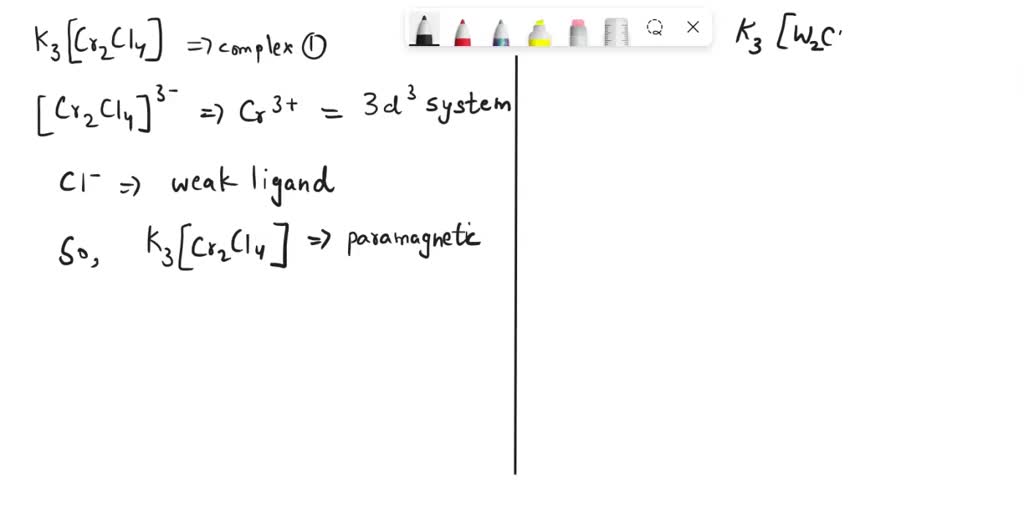 K₃[Cr₂Cl₄] => complex ①
[Cr₂Cl₄]³⁻ => Cr³⁺ = 3d³ system
Cl⁻ => weak ligand
So, K₃[Cr₂Cl₄] => paramagnetic
K₃ [W₂C